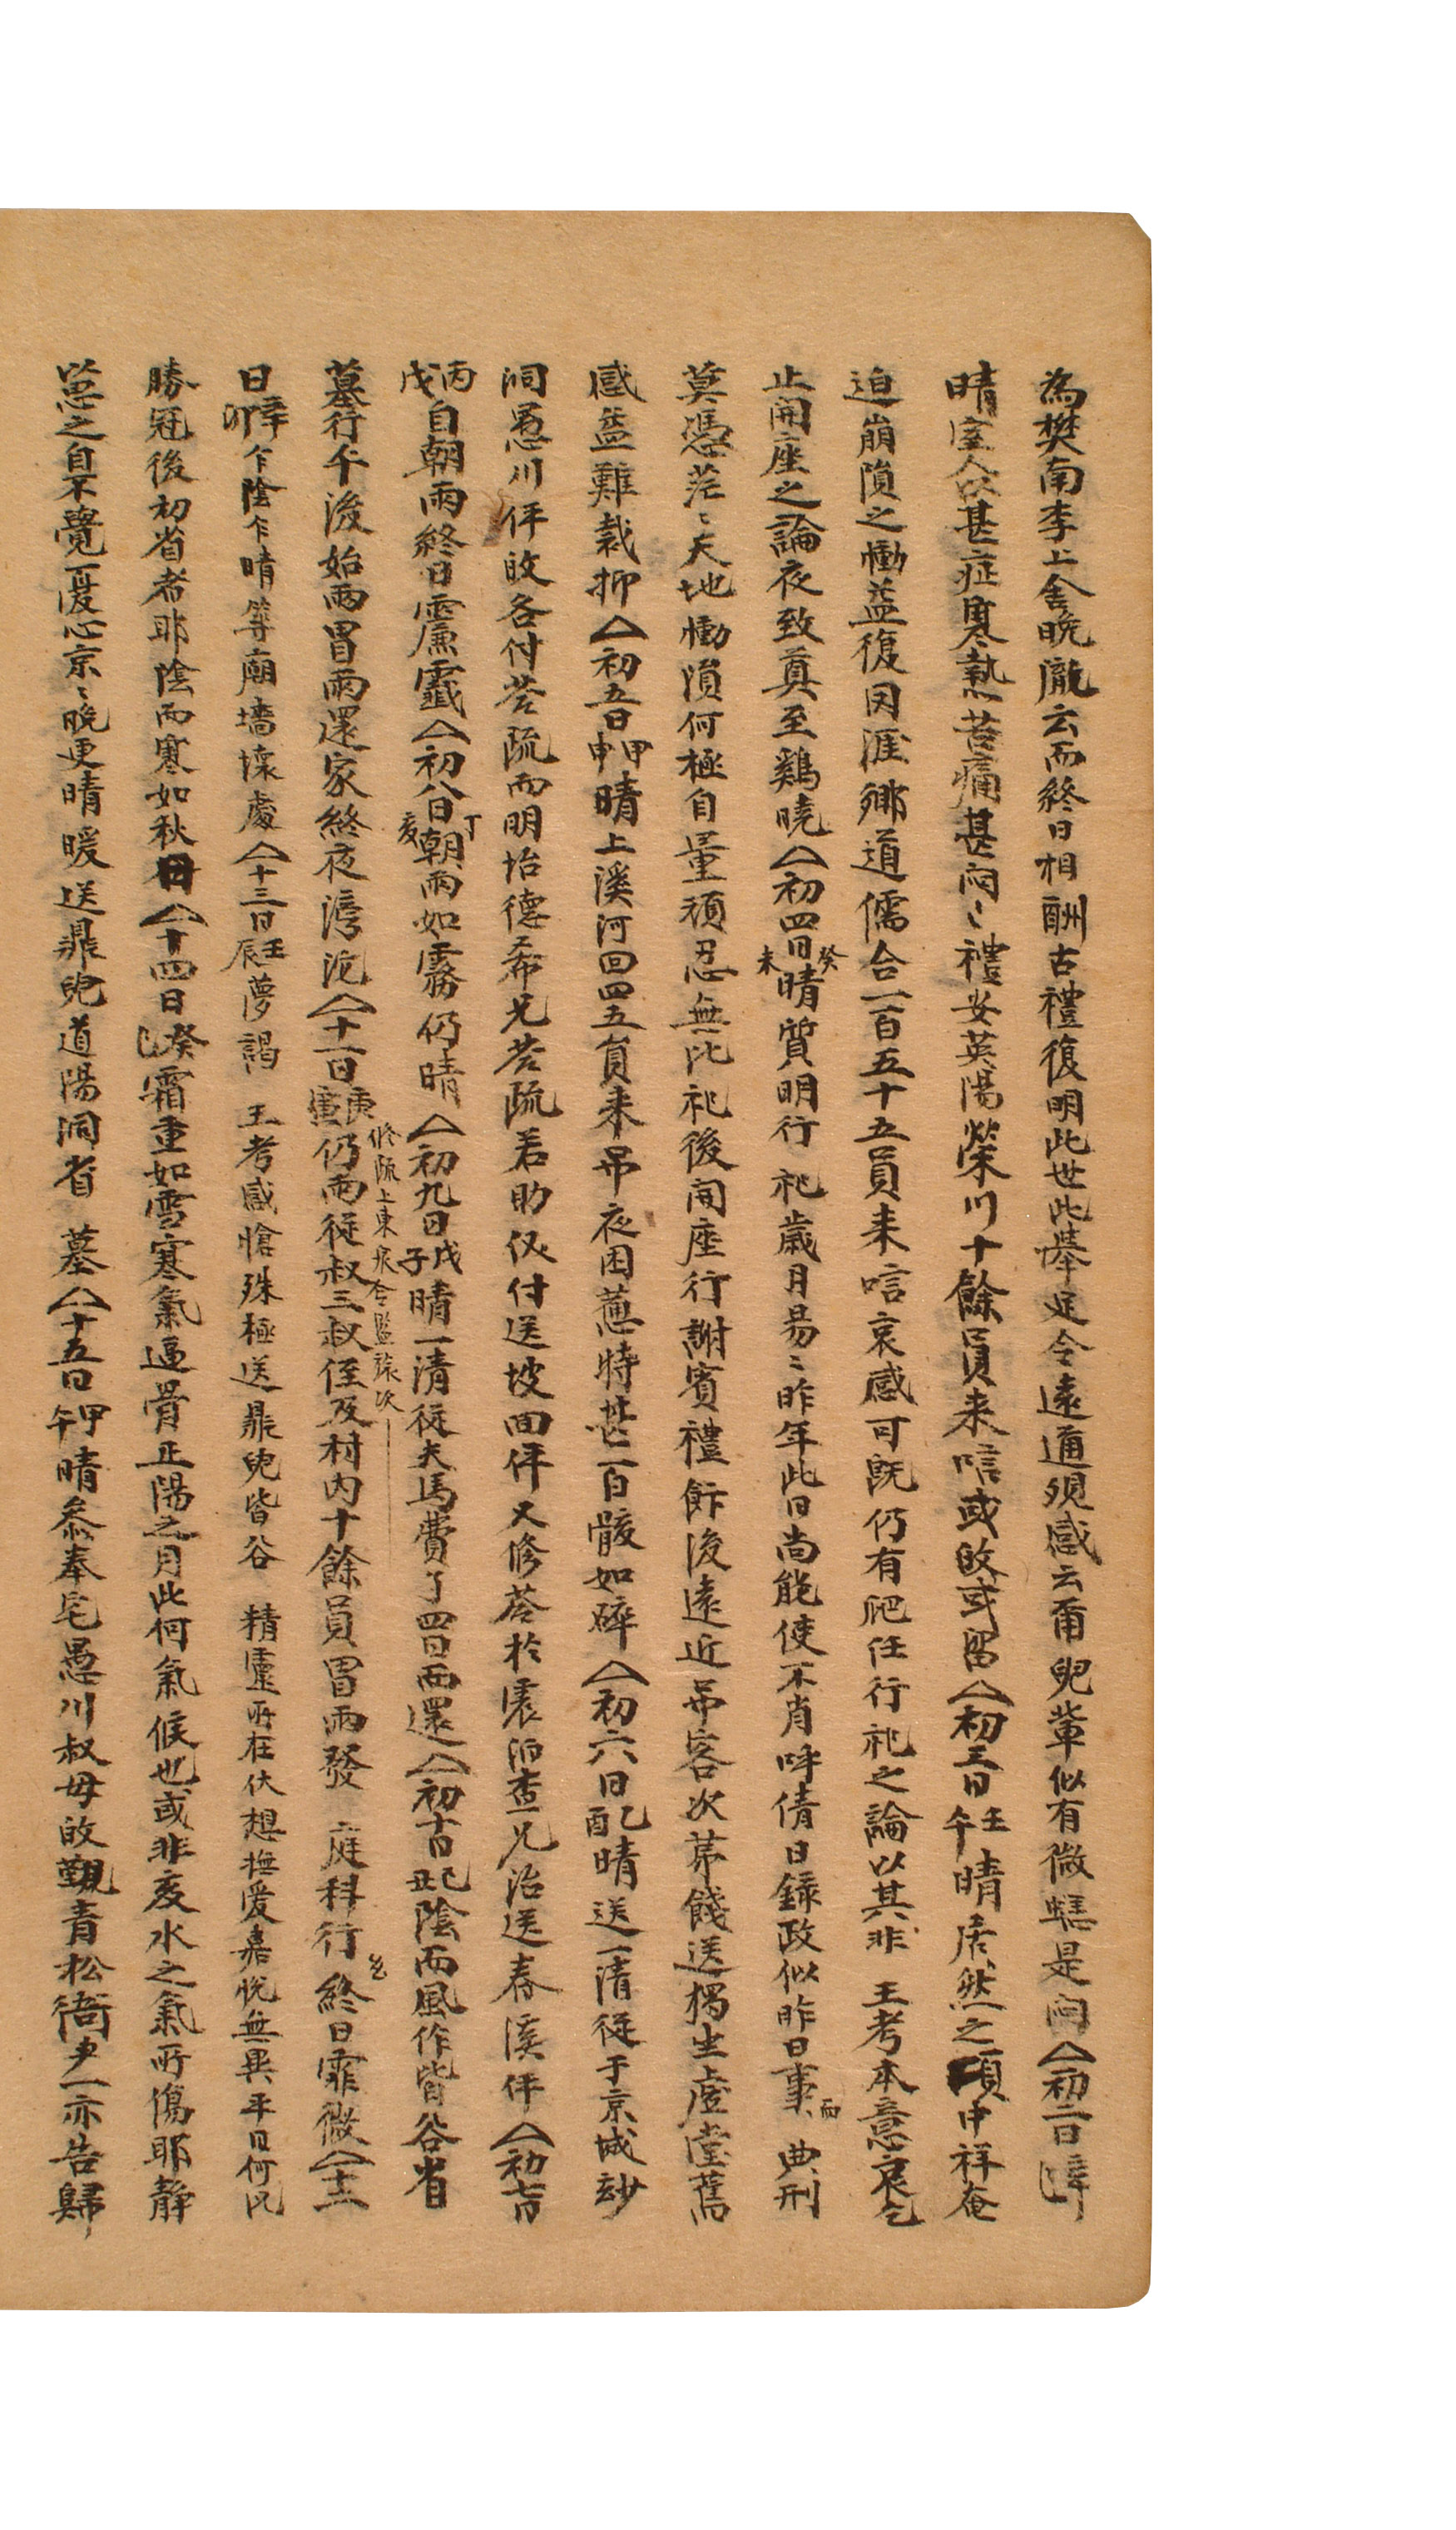 為樊南李上舍晩瀧云而終日相酬古禮復明此世此擧足令遠邇須感云甭兒軰似有微蟋是悶△初二日辛巳
晴室人以甚症寒熱苦痛甚悶〻禮安英陽榮川十餘員来唁或敀或留△初三日壬午晴居然之頃中祥奄
迫崩隕之慟益復因涯鄕道儒合一百五十五員来唁哀感可旣仍有祀任行祀之論以其非 王考本意哀乞
止開座之論夜致奠至鷄曉△初四日癸未晴質明行 祀歲月易〻昨年此日尚能使不肖呼倩日錄政似昨日事而 典刑
莫憑茫〻天地慟隕何極自量頑忍無比祀後開座行謝賓禮餠後遠近吊客次苐餞送獨坐虛堂舊
感益難裁抑△初五日甲申晴上溪河回四五員来吊夜困憊特甚百骸如碎△初六日乙酉晴送一清從于京城玅
洞愚川伻敀各付荅疏而明坮德希兄荅疏若助仅付送坡回伻又修荅於震泊査兄治送春溪伻△初七日
丙戌自朝雨終日霡霂△初八日丁亥朝雨如霧仍晴△初九日戊子晴一清從夫馬費了四日而還△初十日己丑陰而風作皆谷省
修疏上東泉令監旅次
墓行午後始雨冒雨還家終夜滂沱△十一日庚寅仍雨從叔三叔侄及村内十餘員冒雨發 庭科行終日霏微△十二
日辛卯乍陰乍晴等廟墻壞處△十三日壬辰夢謁 王考感愴殊極送鼎兒皆谷 精靈所在伏想撫愛嘉悅無異平日何况
勝冠後初省者耶陰而寒如秋△十四日癸巳霜重如雪寒氣逼骨正陽之月此何氣候也或非亥水之氣所傷耶靜
以思之自不覺憂心京〻晩更晴暖送鼎兒道陽洞省 墓△十五日甲午晴叅奉宅愚川叔母敀覲靑松衙尹一亦告歸